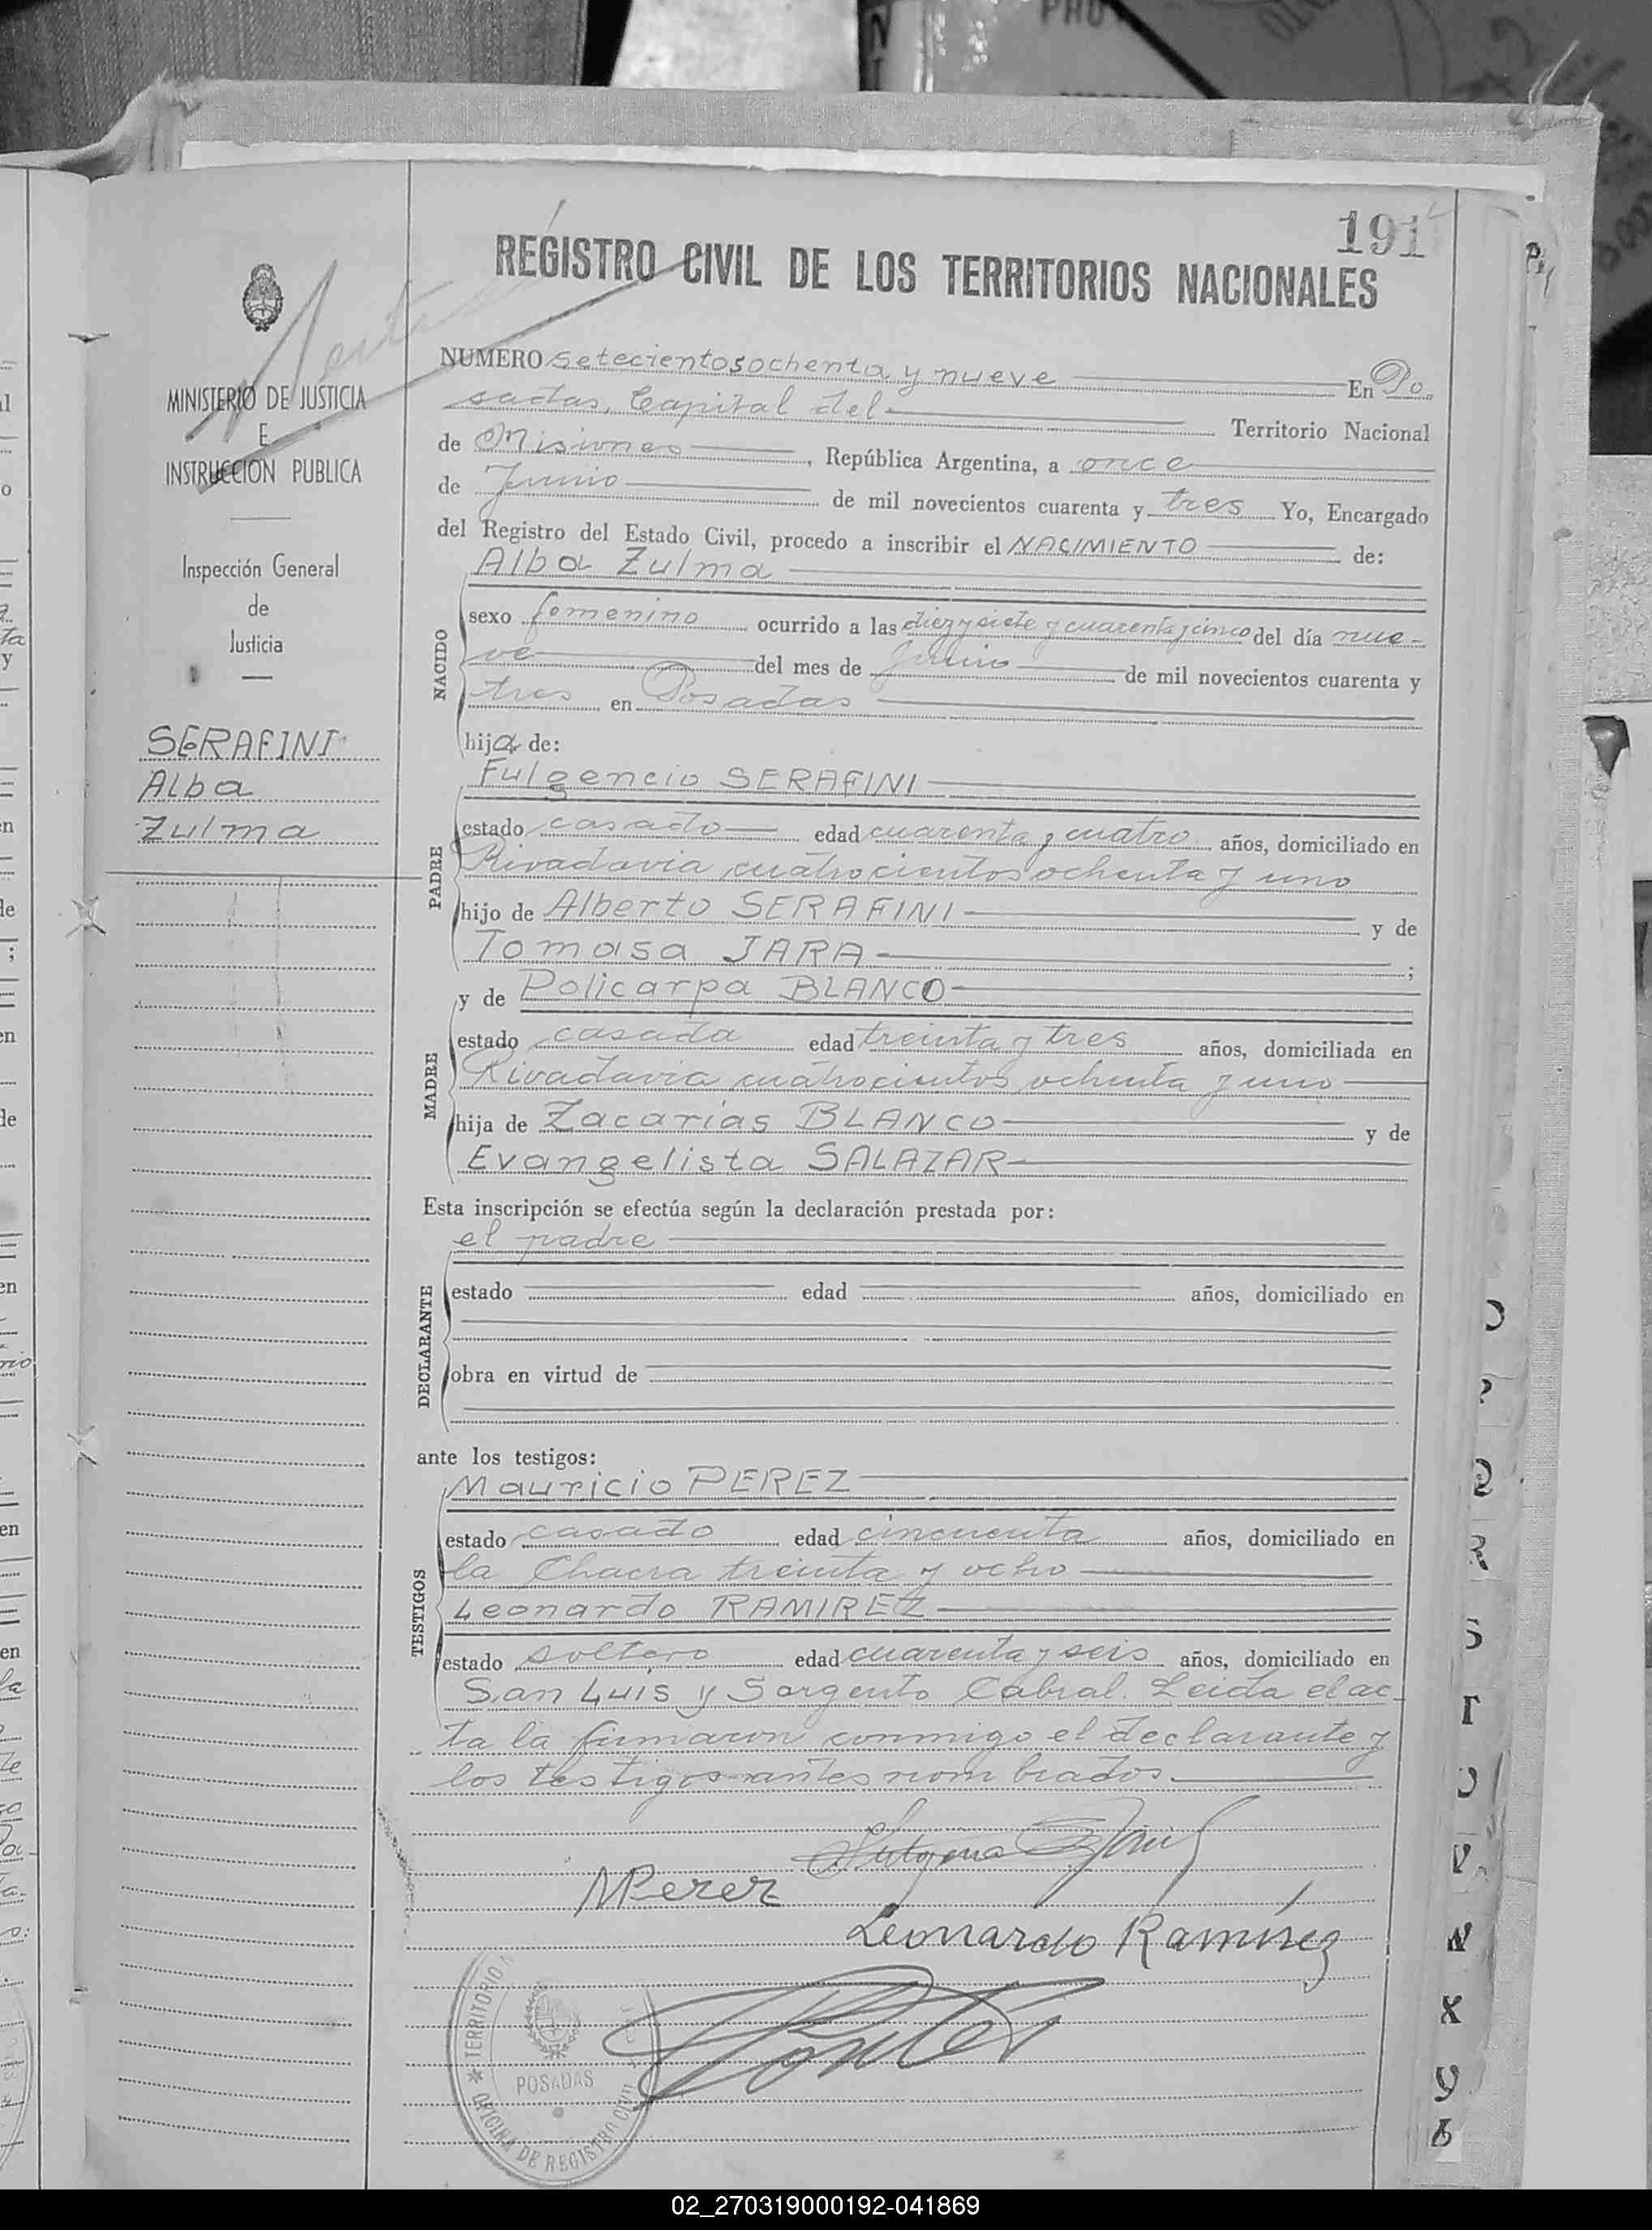 191
REGISTRO CIVIL DE LOS TERRITORIOS NACIONALES
MINISTERIO DE JUSTICIA
E
INSTRUCCION PUBLICA
Inspección General
de
Justicia
SERAFINI
Alba
Zulma
NUMERO setecientos ochenta y nueve En Po
sadas, Capital del Territorio Nacional
de Misiones, República Argentina, a once
de Junio de mil novecientos cuarenta y tres Yo, Encargado
del Registro del Estado Civil, procedo a inscribir el NACIMIENTO de:
Alba Zulma
NACIDO
sexo femenino ocurrido a las diez y siete y cuarenta y cinco del día nue-
ve del mes de Junio de mil novecientos cuarenta y
tres en Posadas
hija de:
Fulgencio SERAFINI
PADRE
estado casado edad cuarenta y cuatro años, domiciliado en
Rivadavia cuatrocientos ochenta y uno
hijo de Alberto SERAFINI y de
Tomasa JARA ;
y de Policarpa BLANCO
MADRE
estado casada edad treinta y tres años, domiciliada en
Rivadavia cuatrocientos ochenta y uno
hija de Zacarías BLANCO y de
Evangelista SALAZAR
Esta inscripción se efectúa según la declaración prestada por:
el padre
DECLARANTE
estado edad años, domiciliado en
obra en virtud de
ante los testigos:
Mauricio PEREZ
TESTIGOS
estado casado edad cincuenta años, domiciliado en
la Chacra treinta y ocho
Leonardo RAMIREZ
estado soltero edad cuarenta y seis años, domiciliado en
San Luis y Sargento Cabral. Leida el ac-
ta la firmaron conmigo el declarante y
los testigos antes nombrados.
MPerez
Leonardo Ramírez
TERRITORIO
POSADAS
OFICINA DE REGISTRO CIVIL
02_270319000192-041869